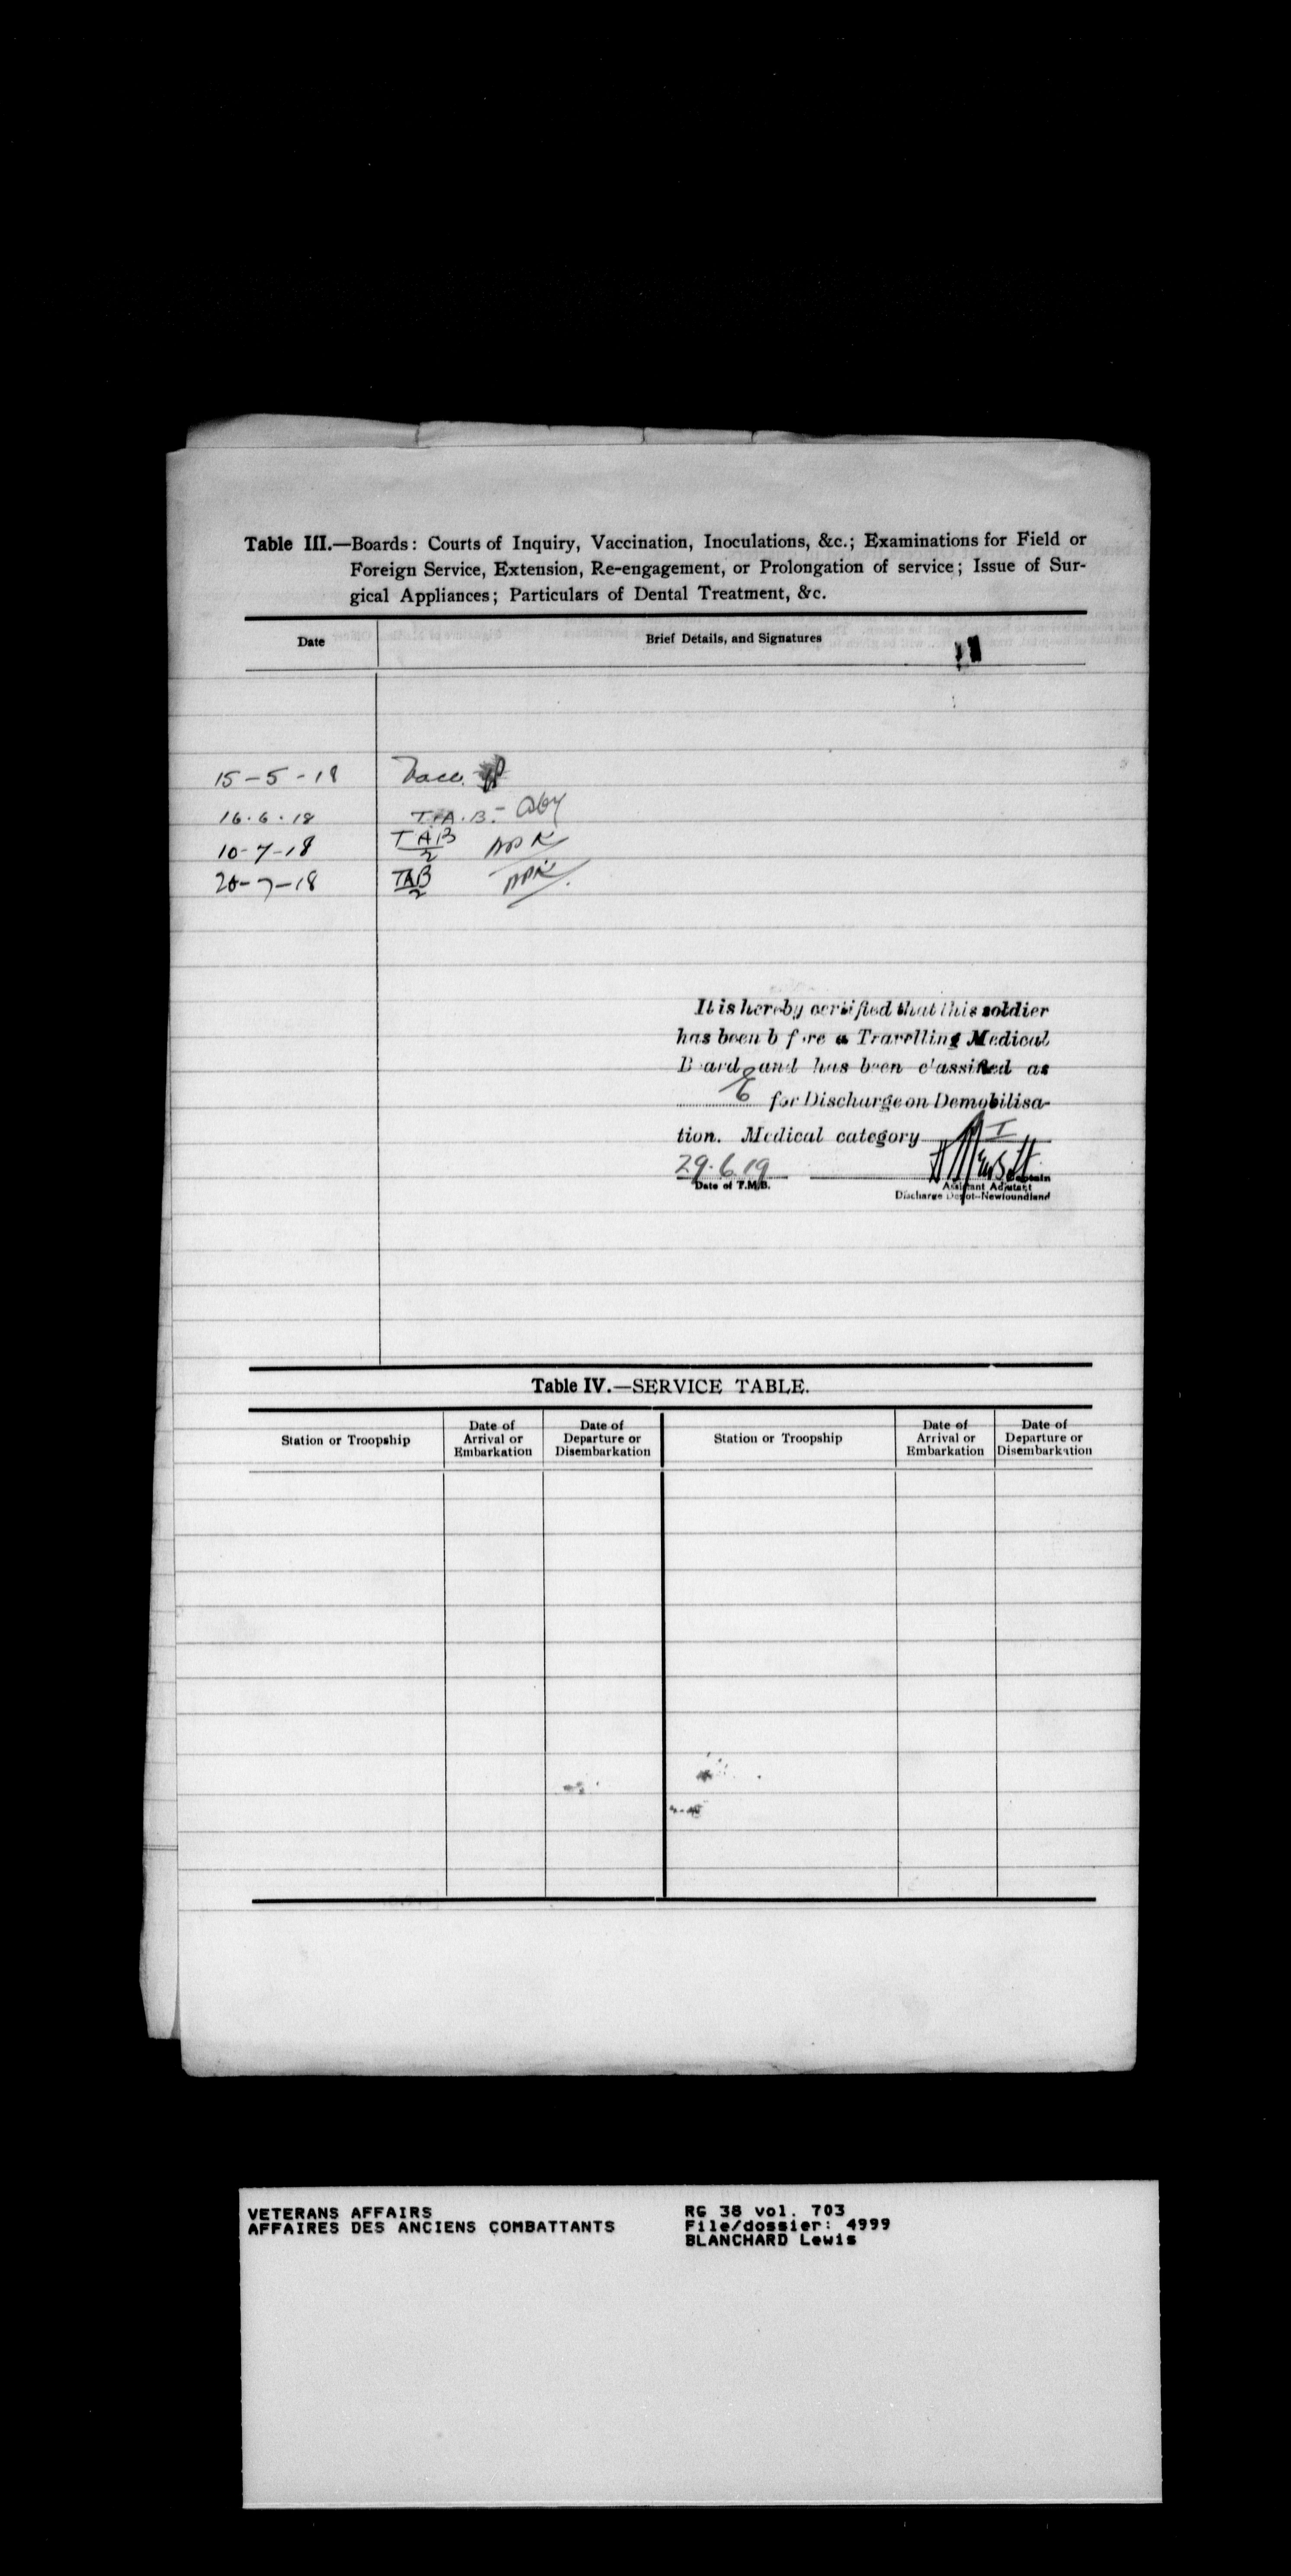 Table III.—Boards: Courts of Inquiry, Vaccination, Inoculations, &c.; Examinations for Field or
Foreign Service, Extension, Re-engagement, or Prolongation of service; Issue of Sur-
gical Appliances; Particulars of Dental Treatment, &c.
Date Brief Details, and Signatures
15-5-18 Vacc.
16.6.18 T.A.B.-
10-7-18 TAB/2
20-7-18 TAB/2
It is hereby certified that this soldier
has been before a Travelling Medical
Board and has been classified as
for Discharge on Demobilisa-
tion. Medical category A I
29.6.19
Date of T.M.B. Captain
Assistant Adjutant
Discharge Depot-Newfoundland
Table IV.—SERVICE TABLE.
Station or Troopship Date of Arrival or Embarkation Date of Departure or Disembarkation Station or Troopship Date of Arrival or Embarkation Date of Departure or Disembarkation
VETERANS AFFAIRS RG 38 vol. 703
AFFAIRES DES ANCIENS COMBATTANTS File/dossier: 4999
BLANCHARD Lewis